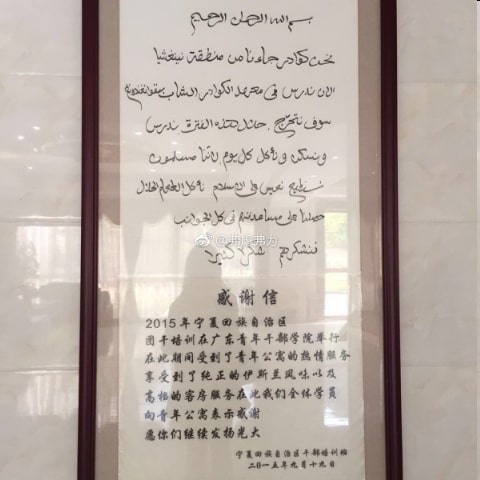 بسم الله الرحمن الرحيم
نحن كوادر جاءنا من منطقة نينغشيا
الان ندرس في معهد الكوادر الشباب بـ
سوف نتخرج خلال هذه الفترة ندرس
ونسكن و نأكل كل يوم لأننا مسلمون
نعيش في الاسلام نأكل الطعام الحلال
حصلنا على مساعدتهم في كل الجوانب
فنشكرهم شكرا كثيرا
感谢信
2015年宁夏回族自治区
团干培训在广东青年干部学院举行
在此期间受到了青年公寓的热情服务
享受到了纯正的伊斯兰风味以及
高档的客房服务在此我们全体学员
向青年公寓表示感谢
愿你们继续发扬光大
宁夏回族自治区干部培训
二〇一五年九月十九日